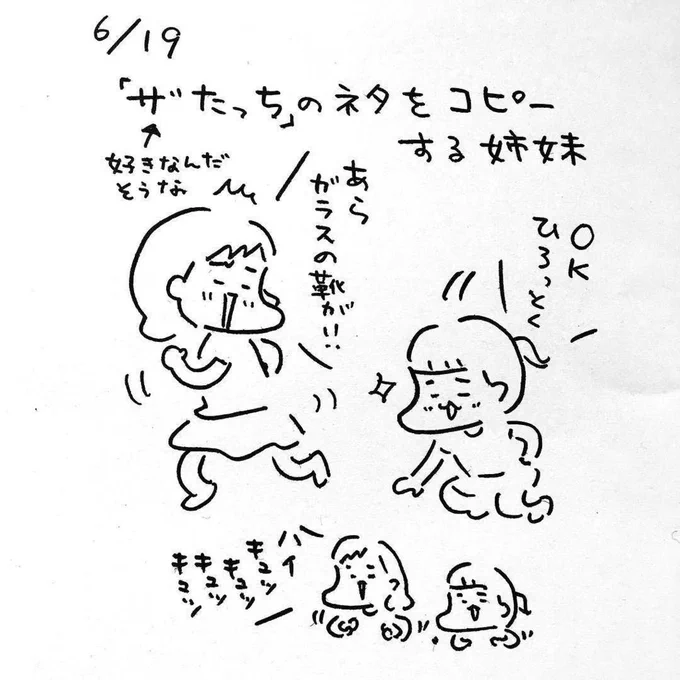 6/19
「ザたっち」のネタをコピー
する姉妹
好きなんだ
そうな
あら
ガラスの靴が!!
OK
ひろっとく
ハイ
キュッ
キュッ
キュッ
キュッ